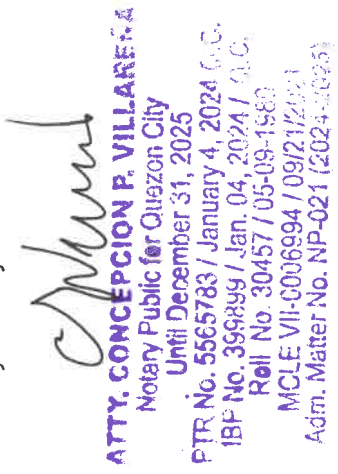 ATTY. CONCEPCION P. VILLAREÑA
Notary Public for Quezon City
Until December 31, 2025
PTR No. 5565783 / January 4, 2024 Q.C.
IBP No. 399899 / Jan. 04, 2024 / Q.C.
Roll No. 30457 / 05-09-1980
MCLE VII-0006994 / 09/21/2021
Adm. Matter No. NP-021 (2024-2025)